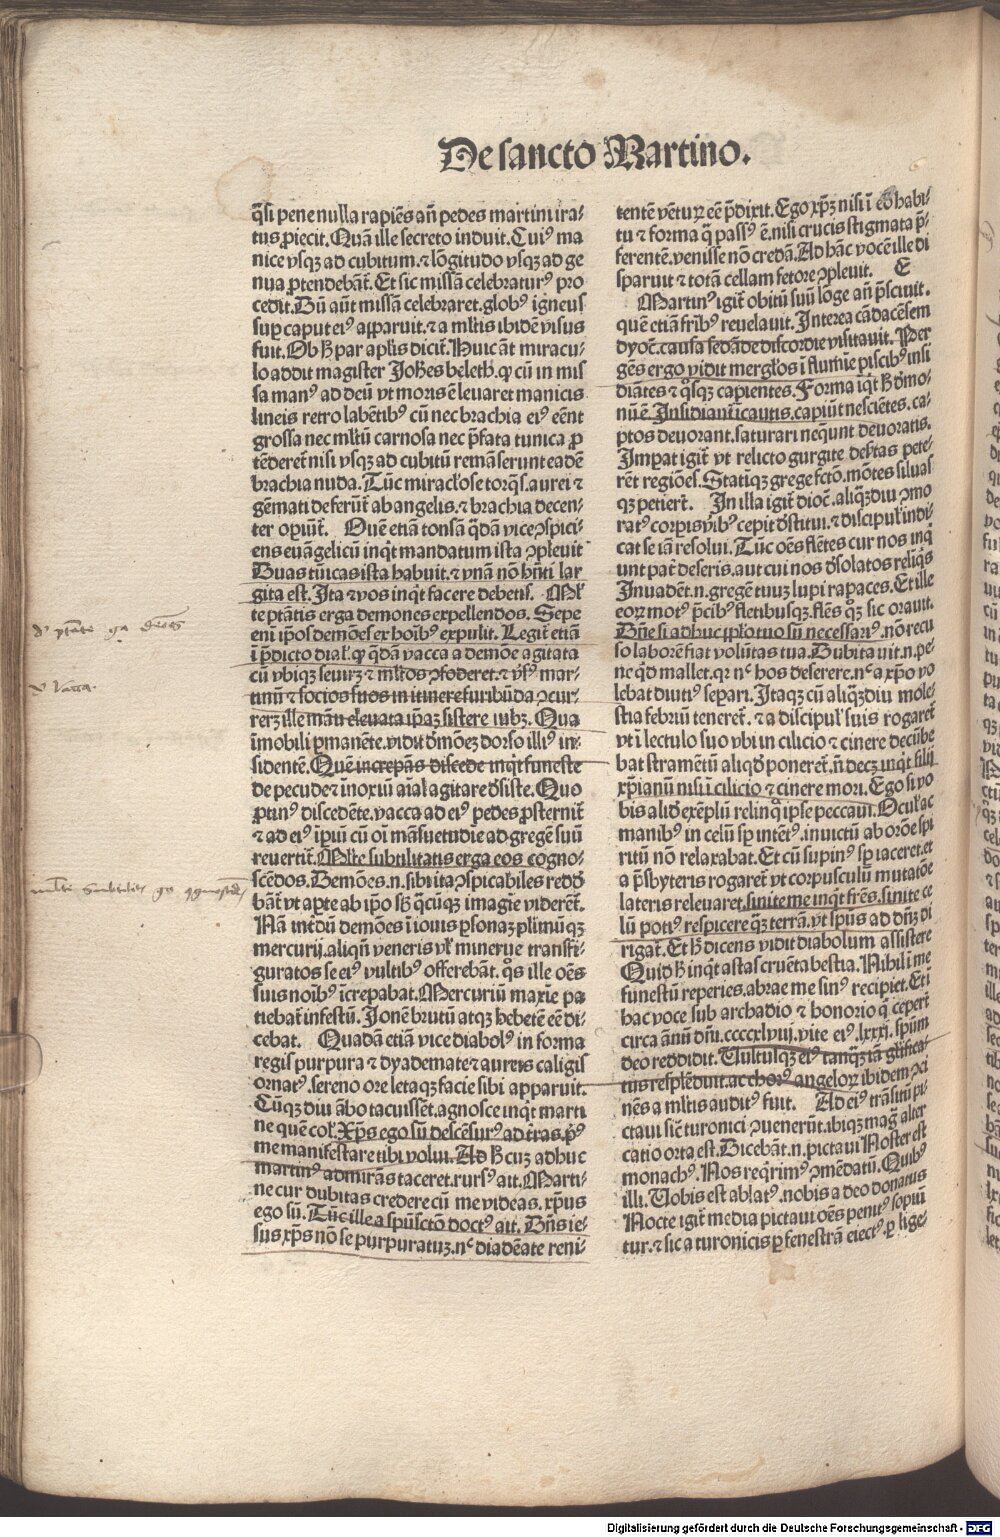 De sancto Martino.
q̃si pene nulla rapiẽs añ pedes martini ira⸗
tus ꝓiecit. Quã ille secreto induit. Cuiꝰ ma
nice vsqꝫ ad cubitum.⁊ lõgitudo vsqꝫ ad ge
nua ꝓtendebãt̃. Et sic missã celebraturꝰ pro
cedit. Dũ aũt missã celebraret.globꝰ igneus
sup̱ caput eiꝰ apparuit.⁊ a ml̃tis ibidẽ visus
fuit. Ob hͦ par apl̃is dicit̃. Huic ãt miracu⸗
lo addit magister Joh̃es beleth. ꝙ cũ in mis
sa manꝰ ad deũ vt moris ẽ leuaret manicis
lineis retro labẽtibꝰ cũ nec brachia eiꝰ eẽnt
grossa nec ml̃tũ carnosa nec p̃fata tunica ꝓ
tẽderet̃ nisi vsqꝫ ad cubitũ remãserunt eadẽ
brachia nuda. Tũc miracl̃ose torq̃s.aurei ⁊
gẽmati deferũt̃ ab angelis.⁊ brachia decen⸗
ter opiũt̃. Quẽ etiã tonsã q̃dã vice ꝯspici⸗
ens euãgelicũ inq̃t mandatum ista ꝯpleuit
Duas tũicas ista habuit.⁊ vnã nõ hñti lar
gita est. Ita ⁊ vos inq̃t facere debetis. Ml̃
te ptãtis erga demones expellendos. Sepe
eni ip̃os demões ex hoĩbꝰ expulit. Legit̃ etiã
ĩ p̃dicto dial̃. ꝙ q̃dã vacca a demõe agitata
cũ vbiqꝫ seuiret ⁊ ml̃tos ꝯfoderet.⁊ ꝯtꝰ mar⸗
tinũ ⁊ socios suos in itinere furibũda ꝯcur⸗
reret ille manũ eleuata ip̃aꝫ sistere iubꝫ. Qua
ĩmobili p̱manẽte.vidit dẽmõeꝫ dorso illiꝰ in⸗
sidentẽ. Quẽ increpãs discede inq̃t funeste
de pecude ⁊ ĩnoxiũ aĩal agitare d̃siste. Quo
ꝓtinꝰ discedẽte.vacca ad eiꝰ pedes ꝓsternit̃
⁊ ad eiꝰ ip̃iuũ cũ oĩ mãsuetudĩe ad gregẽ suũ
reuertit̃. Ml̃te subtilitatis erga eos cogno⸗
scẽdos. Demões.n.sibi ita ꝯspicabiles redd
bãt̃ vt aperte ab ip̃o sb̃ q̃cũqꝫ imagĩe viderẽt̃.
Nã int̃dũ demões ĩ iouis p̱sonaꝫ pl̃imũqꝫ
mercurij.aliqñ veneris vl̃ minerue transfi⸗
guratos se eiꝰ vultibꝰ offerebãt. q̃s ille oẽs
suis noĩbꝰ ĩcrepabat. Mercuriũ maxĩe pa
tiebat̃ infestũ. Jouẽ brutũ atqꝫ hebetẽ eẽ di⸗
cebat. Quadã etiã vice diabolꝰ in forma
regis purpura ⁊ dyademate ⁊ aureis caligis
ornatꝰ.sereno ore letaqꝫ facie sibi apparuit.
Cũqꝫ diu ãbo tacuissẽt.agnosce inq̃t marti
ne quẽ col̃. Xp̃s ego sũ descẽsurꝰ ad t̃ras.p̃ꝰ
me manifestare tibi volui. Ad hͦ cuꝫ adhuc
martinꝰ admirãs taceret.rursꝰ ait. Marti⸗
ne cur dubitas credere cũ me videas. xp̃us
ego sũ. Tũc ille a spũsctõ doctꝰ ait. Dñs ie⸗
sus xp̃s nõ se purpuratuꝫ.nᶜ diadẽate reni⸗
tentẽ vẽtuꝝ eẽ p̃dixit. Ego xp̃ꝫ nisi ĩ eo habi⸗
tu ⁊ forma q̃ passꝰ ẽ.nisi crucis stigmata p̃⸗
ferentẽ.venisse nõ credã. Ad hãc vocẽ ille di
sparuit ⁊ totã cellam fetore ꝯpleuit. E
Martinꝰ igit̃ obitũ suũ lõge añ p̃sciuit.
quẽ etiã fr̃ibꝰ reuelauit. Interea cãdacẽsem
dyoc̃.causa sedãde discordie visitauit. Per
gẽs ergo vidit mergl̃os ĩ flumĩe piscibꝰ insi
diãtes ⁊ q̃sqꝫ capientes. Forma ĩq̃t hͦ dẽmo⸗
nũ ẽ. Insidiant̃ ĩcautis.capiũt nesciẽtes.ca⸗
ptos deuorant.saturari neq̃unt deuoratis.
Imp̱at igit̃ vt relicto gurgite.deserṫas pete⸗
rẽt regiões. Statĩqꝫ grege fctõ.mõtes siluas
qꝫ petiert̃. In illa igit̃ dioc̃.aliq̃diu ꝯmo
ratꝰ corpis virĩbꝰ cepit d̃stitui.⁊ discipul̃ indi⸗
cat se iã resolui. Tũc oẽs flẽtes cur nos inq̃
unt pat̃ deseris.aut cui nos d̃solatos reliq̃s
Inuadẽt.n.gregẽ tuuꝫ lupi rapaces. Et ille
eoꝝ motꝰ p̃cibꝰ fletibusqꝫ.flẽs q̃qꝫ sic orauit.
Dñe si adhuc pp̃lo tuo sũ necessariꝰ.nõ recu
so laborẽ fiat volũtas tua. Dubitauit.n.pe⸗
ne q̃d mallet.qꝛ nᶜ hos deserere.nᶜ a xp̃o vo
lebat diutiꝰ separi. Itaqꝫ cũ aliq̃diu mole⸗
stia febriũ teneret̃.⁊ a discipul̃ suis rogaret̃
vt ĩ lectulo suo vbi in cilicio ⁊ cinere decũbe
bat stramẽtũ aliq̃d poneret̃.ñ decꝫ inq̃t filij
xp̃ianũ nisi ĩ cilicio ⁊ cinere mori. Ego si vo
bis aliud exẽplũ relinq̃ ipse peccaui. Ocul̃ ac
manibꝰ in celũ sp̱ intẽtꝰ.inuictũ ab orõe spi
ritũ nõ relaxabat. Et cũ supinꝰ sp̱ iaceret.et
a p̃sbyteris rogaret̃ vt corpusculũ mutatõe
lateris releuaret.sinite me inq̃t fr̃es.sinite ce
lũ potiꝰ respicere q̃ꝫ terrã.vt spũs ad dñꝫ di
rigat̃. Et hͦ dicens vidit diabolum assistere
Quid hͦ inq̃t astas cruẽta bestia. Nihil ĩ me
funestũ reperies.abrae me sinꝰ recipiet. Et ĩ
hac voce sub archadio ⁊ honorio q̃ cepert̃
circa ãnũ dñi.ccccxlviij.vite eiꝰ.lxxxj.spũm
deo reddidit. Vultusqꝫ eiꝰ tanq̃ꝫ iã glĩfica⸗
tus resplẽduit.ac chorꝰ angeloꝝ ibidem ꝯci
nẽs a ml̃tis auditꝰ fuit. Ad eiꝰ trãsitũ pi⸗
ctaui sic̃ turonici ꝯuenerũt.ibiqꝫ mag̃ alter
catio orta est. Dicebãt.n.pictaui Noster est
monachꝰ. Nos req̃rimꝰ ꝯmẽdatũ. Quibꝰ
illi. Vobis est ablatꝰ.nobis a deo donatus
Nocte igit̃ media pictaui oẽs penitꝰ sopiũ
tur.⁊ sic a turonicis p̱ fenestrã eiectꝰ.p̱ lige⸗
Digitalisierung gefördert durch die Deutsche Forschungsgemeinschaft - DFG